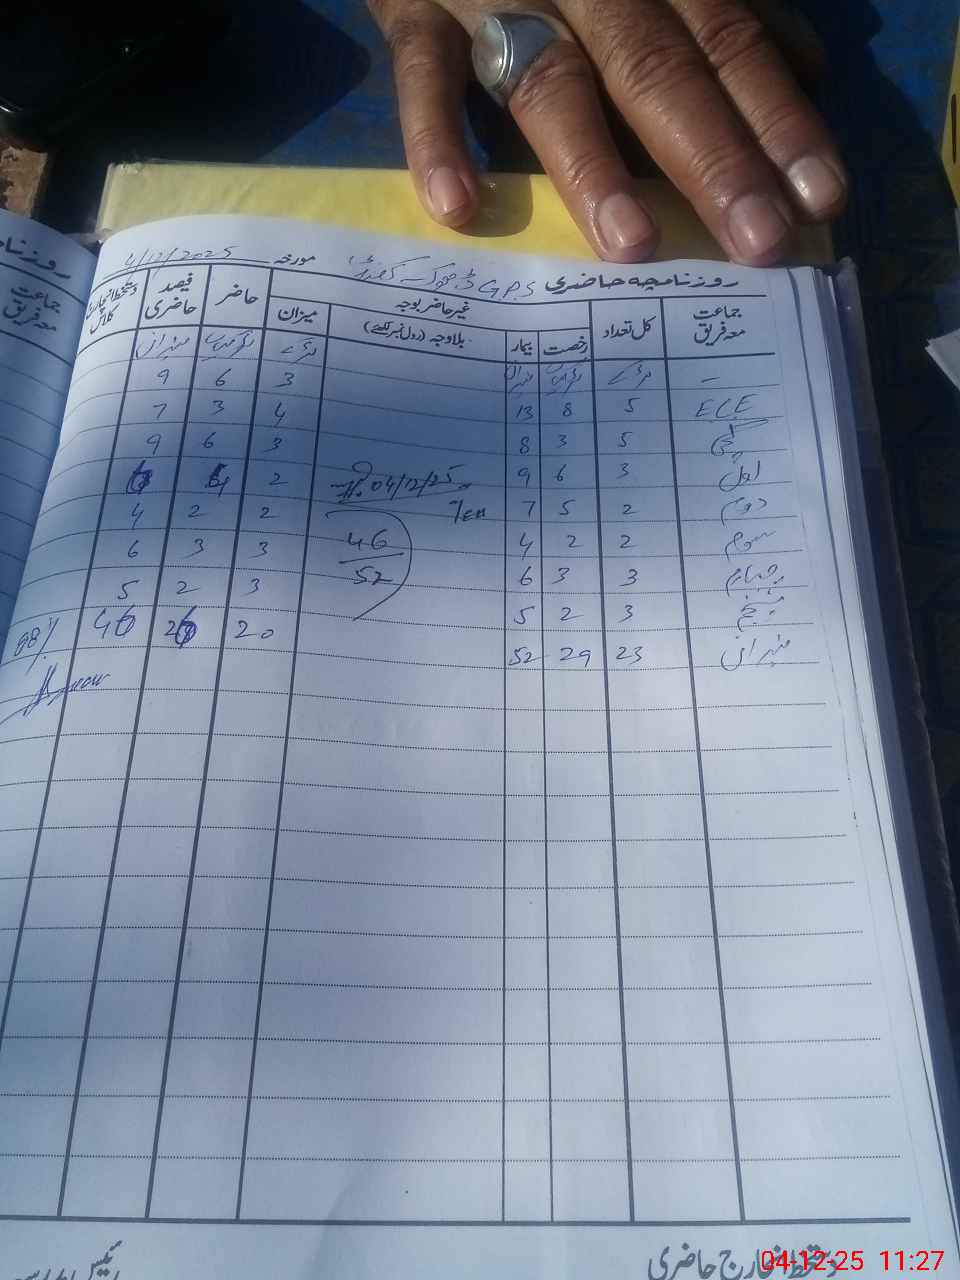 روزنامچہ حاضری G.P.S ڈھوک مورخہ 4/12/2025
جماعت معہ فریق کل تعداد غیر حاضر بوجہ میزان حاضر فیصد حاضری دستخط انچارج کلاس
رخصت بیمار بلاوجہ (رول نمبر لکھیے)
ECE 5 8 13 3 6 9
5 3 8 4 3 7
اول 3 6 9 3 6 9
دوم 2 5 7 2 4
سوم 2 2 4 2 2 4
چہارم 3 3 6 3 3 6
پنجم 3 2 5 3 2 5
میزان 23 29 52 20 26 46 88%
04/12/25
46
52
دستخط انچارج حاضری
روزنا
جماعت
معہ فریق
04-12-25 11:27